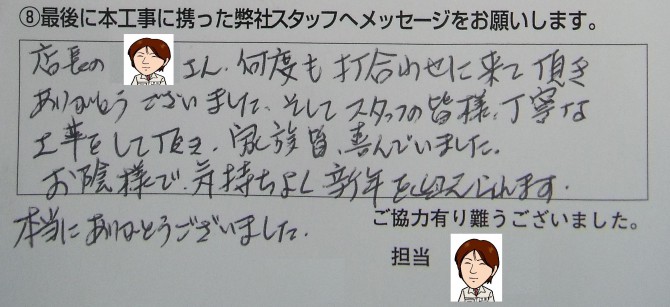 ⑧最後に本工事に携った弊社スタッフへメッセージをお願いします。
店長の さん、何度も打合わせに来て頂き
ありがとうございました、そしてスタッフの皆様、丁寧な
工事をして頂き、家族皆、喜んでいました。
お陰様で、気持ちよく新年を迎えられます。
本当にありがとうございました。
ご協力有り難うございました。
担当